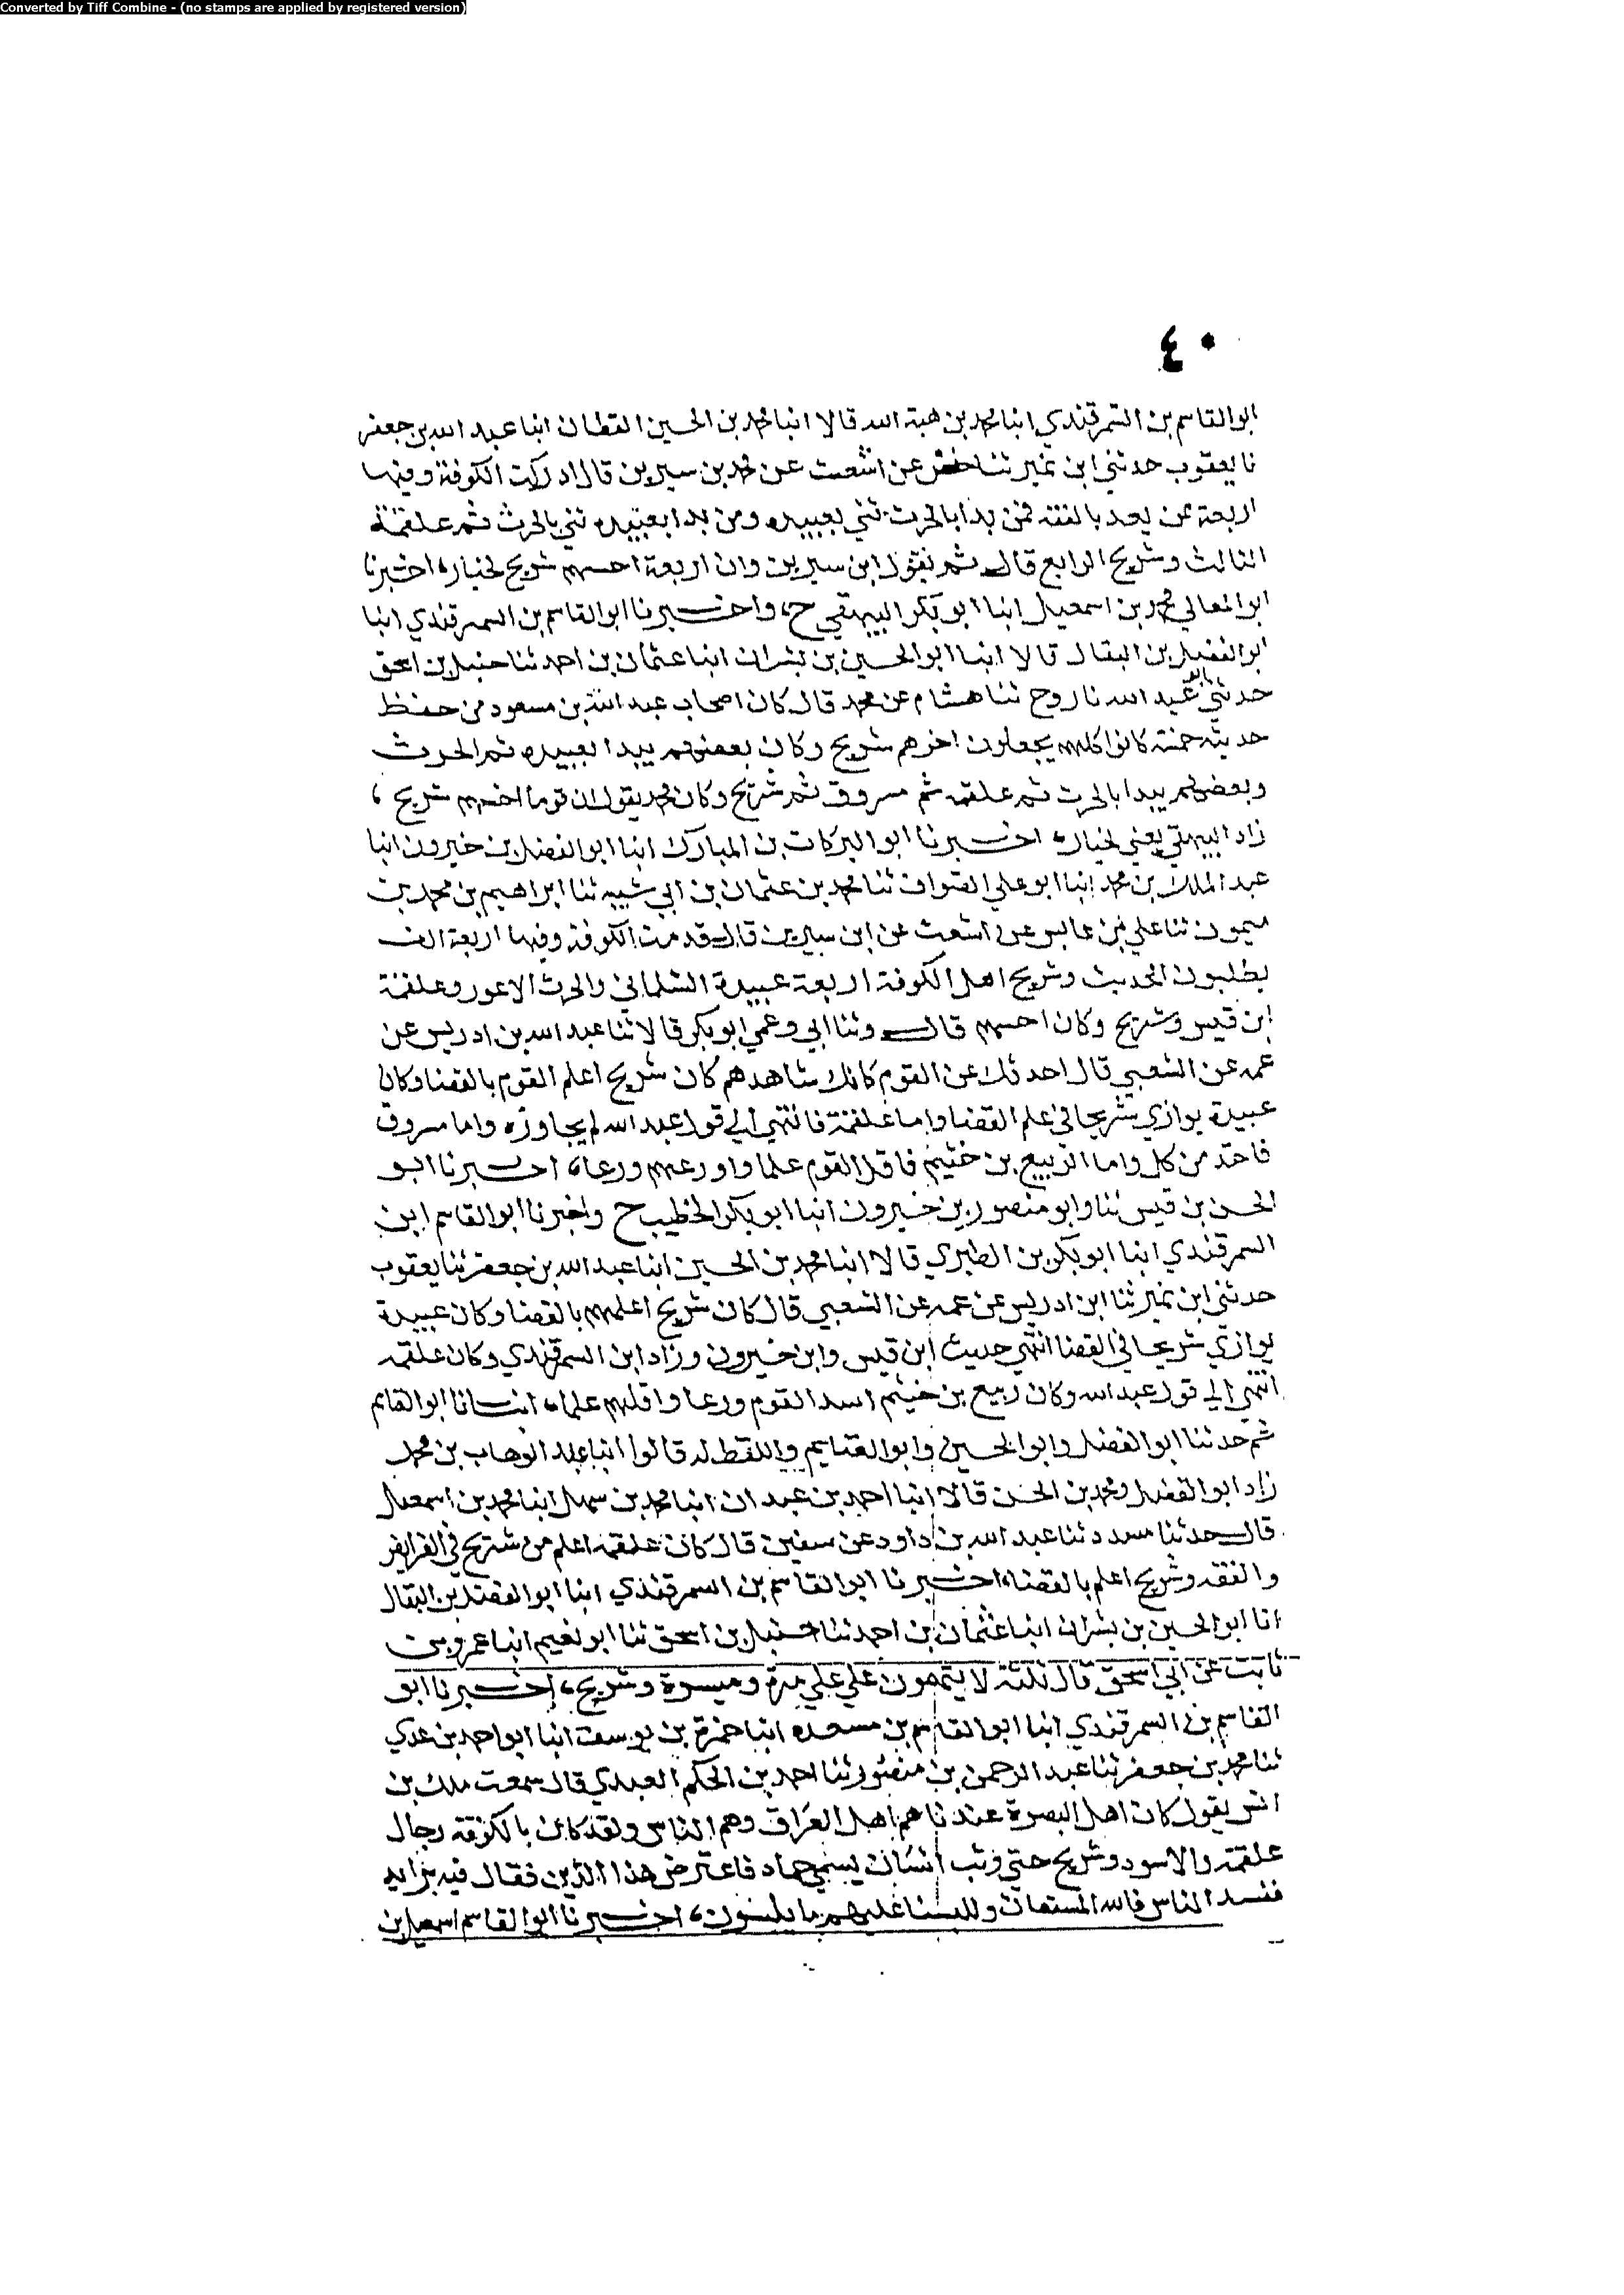 Converted by Tiff Combine - (no stamps are applied by registered version)
٤٠
ابو القاسم بن السمرقندي انبا محمد بن هبة الله قالا انبا محمد بن الحسين القطان انبا عبد الله بن جعفر
نا يعقوب حدثني ابن نمير ثنا حفص عن اشعث عن محمد بن سيرين قال ادركت الكوفة وفيها
اربعة ممن يعد بالفقه فمن بدا بالحرث ثني بعبيده ومن بدا بعبيده ثني بالحرث ثم علقمة
الثالث وشريح الرابع قال ثم يقول ابن سيرين وان اربعة اخسهم شريح لخيار، اخبرنا
ابو المعالي محمد بن اسمعيل انبا ابو بكر البيهقي ح، واخبرنا ابو القاسم بن السمرقندي انبا
ابو الفضل بن البقال قالا انبا ابو الحسين بن بشران انبا عثمان بن احمد ثنا حنبل بن اسحق
حدثني ابو عبد الله نا روح ثنا هشام عن محمد قال كان اصحاب عبد الله بن مسعود من حفظ
حديثه خمسة كانوا كلهم يجعلون اخرهم شريح وكان بعضهم يبدا بعبيده ثم الحرث
وبعضهم يبدا بالحرث ثم علقمه ثم مسروق ثم شريح وكان محمد يقول ان قوما اخسهم شريح ،
زاد البيهقي يعني لخيار، اخبرنا ابو البركات بن المبارك انبا ابو الفضل بن خيرون انبا
عبد الملك بن محمد انبا ابو علي الصواف ثنا محمد بن عثمان بن ابي شيبه ثنا ابراهيم بن محمد بن
ميمون ثنا علي بن عابس عن اشعث عن ابن سيرين قال قدمت الكوفة وفيها اربعة الف
يطلبون الحديث وشريح اهل الكوفة اربعة عبيدة السلماني والحرث الاعور وعلقمة
ابن قيس وشريح وكان احسهم قال وثنا ابي وعمي ابو بكر قالا ثنا عبد الله بن ادريس عن
عمه عن الشعبي قال احدثك عن القوم كانك شاهدهم كان شريح اعلم القوم بالقضا وكان
عبيدة يوازي شريحا في علم القضا واما علقمة فانتهى الي قول عبد الله لم يجاوزه واما مسروق
فاخذ من كل واما الربيع بن خثيم فاقل القوم علما واورعهم ورعا، اخبرنا ابو
الحسن بن قيس ثنا وابو منصور بن خيرون انبا ابو بكر الخطيب ح واخبرنا ابو القاسم ابن
السمرقندي انبا ابو بكر بن الطبري قالا انبا محمد بن الحسين انبا عبد الله بن جعفر ثنا يعقوب
حدثني ابن نمير ثنا ابن ادريس عن عمه عن الشعبي قال كان شريح اعلمهم بالقضا وكان عبيدة
يوازي شريحا في القضا انتهى حديث ابن قيس وابن خيرون وزاد ابن السمرقندي وكان علقمه
انتهي الي قول عبد الله وكان ربيع بن خثيم اسد القوم ورعا واقلهم علما، انبانا ابو القاسم
ثم حدثنا ابو الفضل وابو الحسين وابو الغنايم واللفظ له قالوا انبا عبد الوهاب بن محمد
زاد ابو الفضل ومحمد بن الحسن قالا انبا احمد بن عبدان انبا محمد بن سهل انبا محمد بن اسمعيل
قال حدثنا مسدد ثنا عبد الله بن داود عن سفين قال كان علقمه اعلم من شريح في الفرايض
والفقه وشريح اعلم بالقضا، اخبرنا ابو القاسم بن السمرقندي انبا ابو الفضل بن البقال
انا ابو الحسين بن بشران انبا عثمان بن احمد ثنا حنبل بن اسحق ثنا ابو نعيم انبا عمرو بن
ثابت عن ابي اسحق قال ثلثة لا يتهمون علي علي مرة وميسرة وشريح، اخبرنا ابو
القاسم بن السمرقندي انبا ابو القاسم بن مسعده انبا حمزة بن يوسف انبا ابو احمد بن عدي
ثنا محمد بن جعفر ثنا عبد الرحمن بن منصور ثنا احمد بن الحكم العبدي قال سمعت ملك بن
انس يقول كان اهل البصرة عندنا هم اهل العراق وهم الناس ولقد كان بالكوفة رجال
علقمة والاسود وشريح حتي وثب انسان يسمي حماد فاعترض هذا الدين فقال فيه برايه
ففسد الناس فالله المستعان وللبسنا عليهم ما يلبسون، اخبرنا ابو القاسم اسمعيل بن